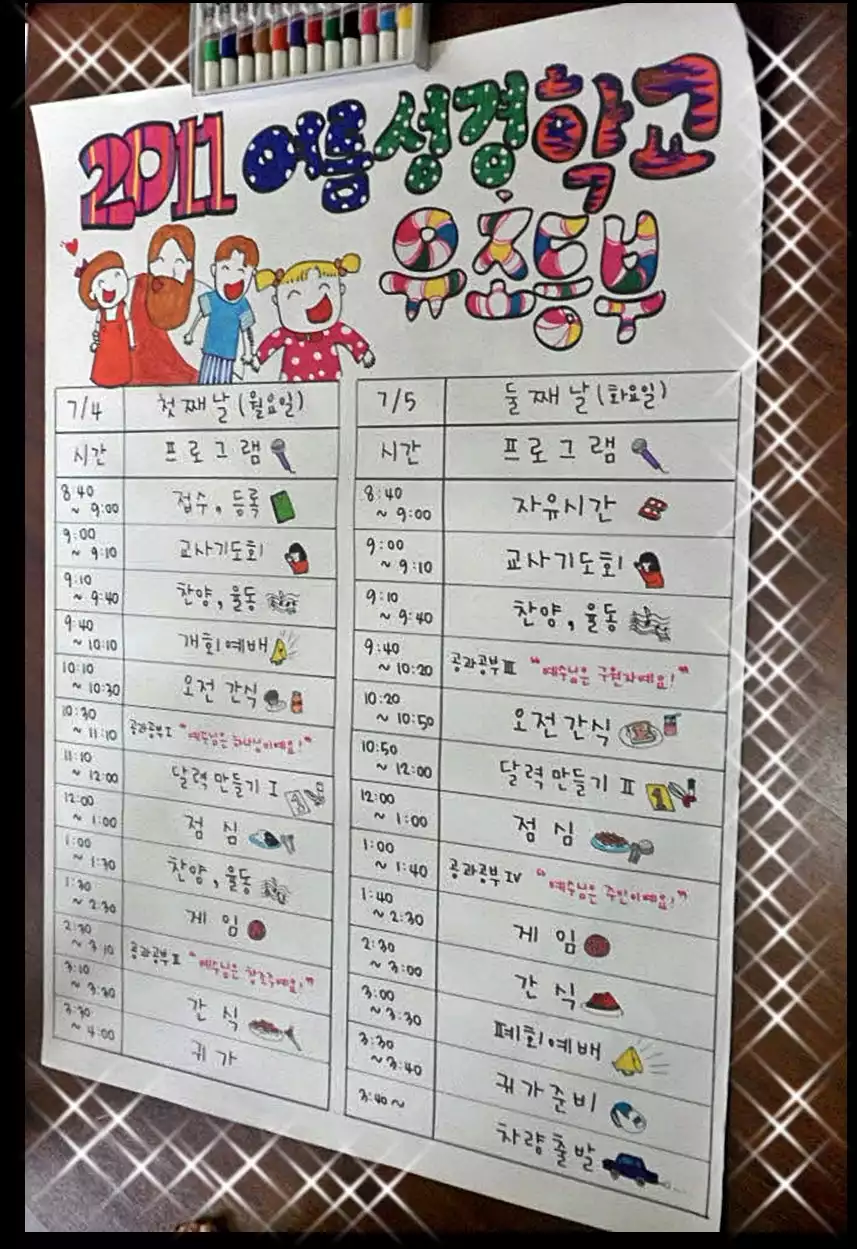 2011 여름성경학교
유초등부
7/4 첫째날(월요일)
시간 프로그램
8:40 ~ 9:00 접수, 등록
9:00 ~ 9:10 교사기도회
9:10 ~ 9:40 찬양, 율동
9:40 ~ 10:10 개회예배
10:10 ~ 10:30 오전 간식
10:30 ~ 11:10 공과공부 I "예수님은 하나님이예요!"
11:10 ~ 12:00 달력만들기 I
12:00 ~ 1:00 점심
1:00 ~ 1:30 찬양, 율동
1:30 ~ 2:30 게임
2:30 ~ 3:10 공과공부 II "예수님은 창조주예요!"
3:10 ~ 3:30 간식
3:30 ~ 4:00 귀가
7/5 둘째날(화요일)
시간 프로그램
8:40 ~ 9:00 자유시간
9:00 ~ 9:10 교사기도회
9:10 ~ 9:40 찬양, 율동
9:40 ~ 10:20 공과공부 III "예수님은 구원자예요!"
10:20 ~ 10:50 오전간식
10:50 ~ 12:00 달력만들기 II
12:00 ~ 1:00 점심
1:00 ~ 1:40 공과공부 IV "예수님은 주인이예요!"
1:40 ~ 2:30 게임
2:30 ~ 3:00 간식
3:00 ~ 3:30 폐회예배
3:30 ~ 3:40 귀가준비
3:40 ~ 차량출발